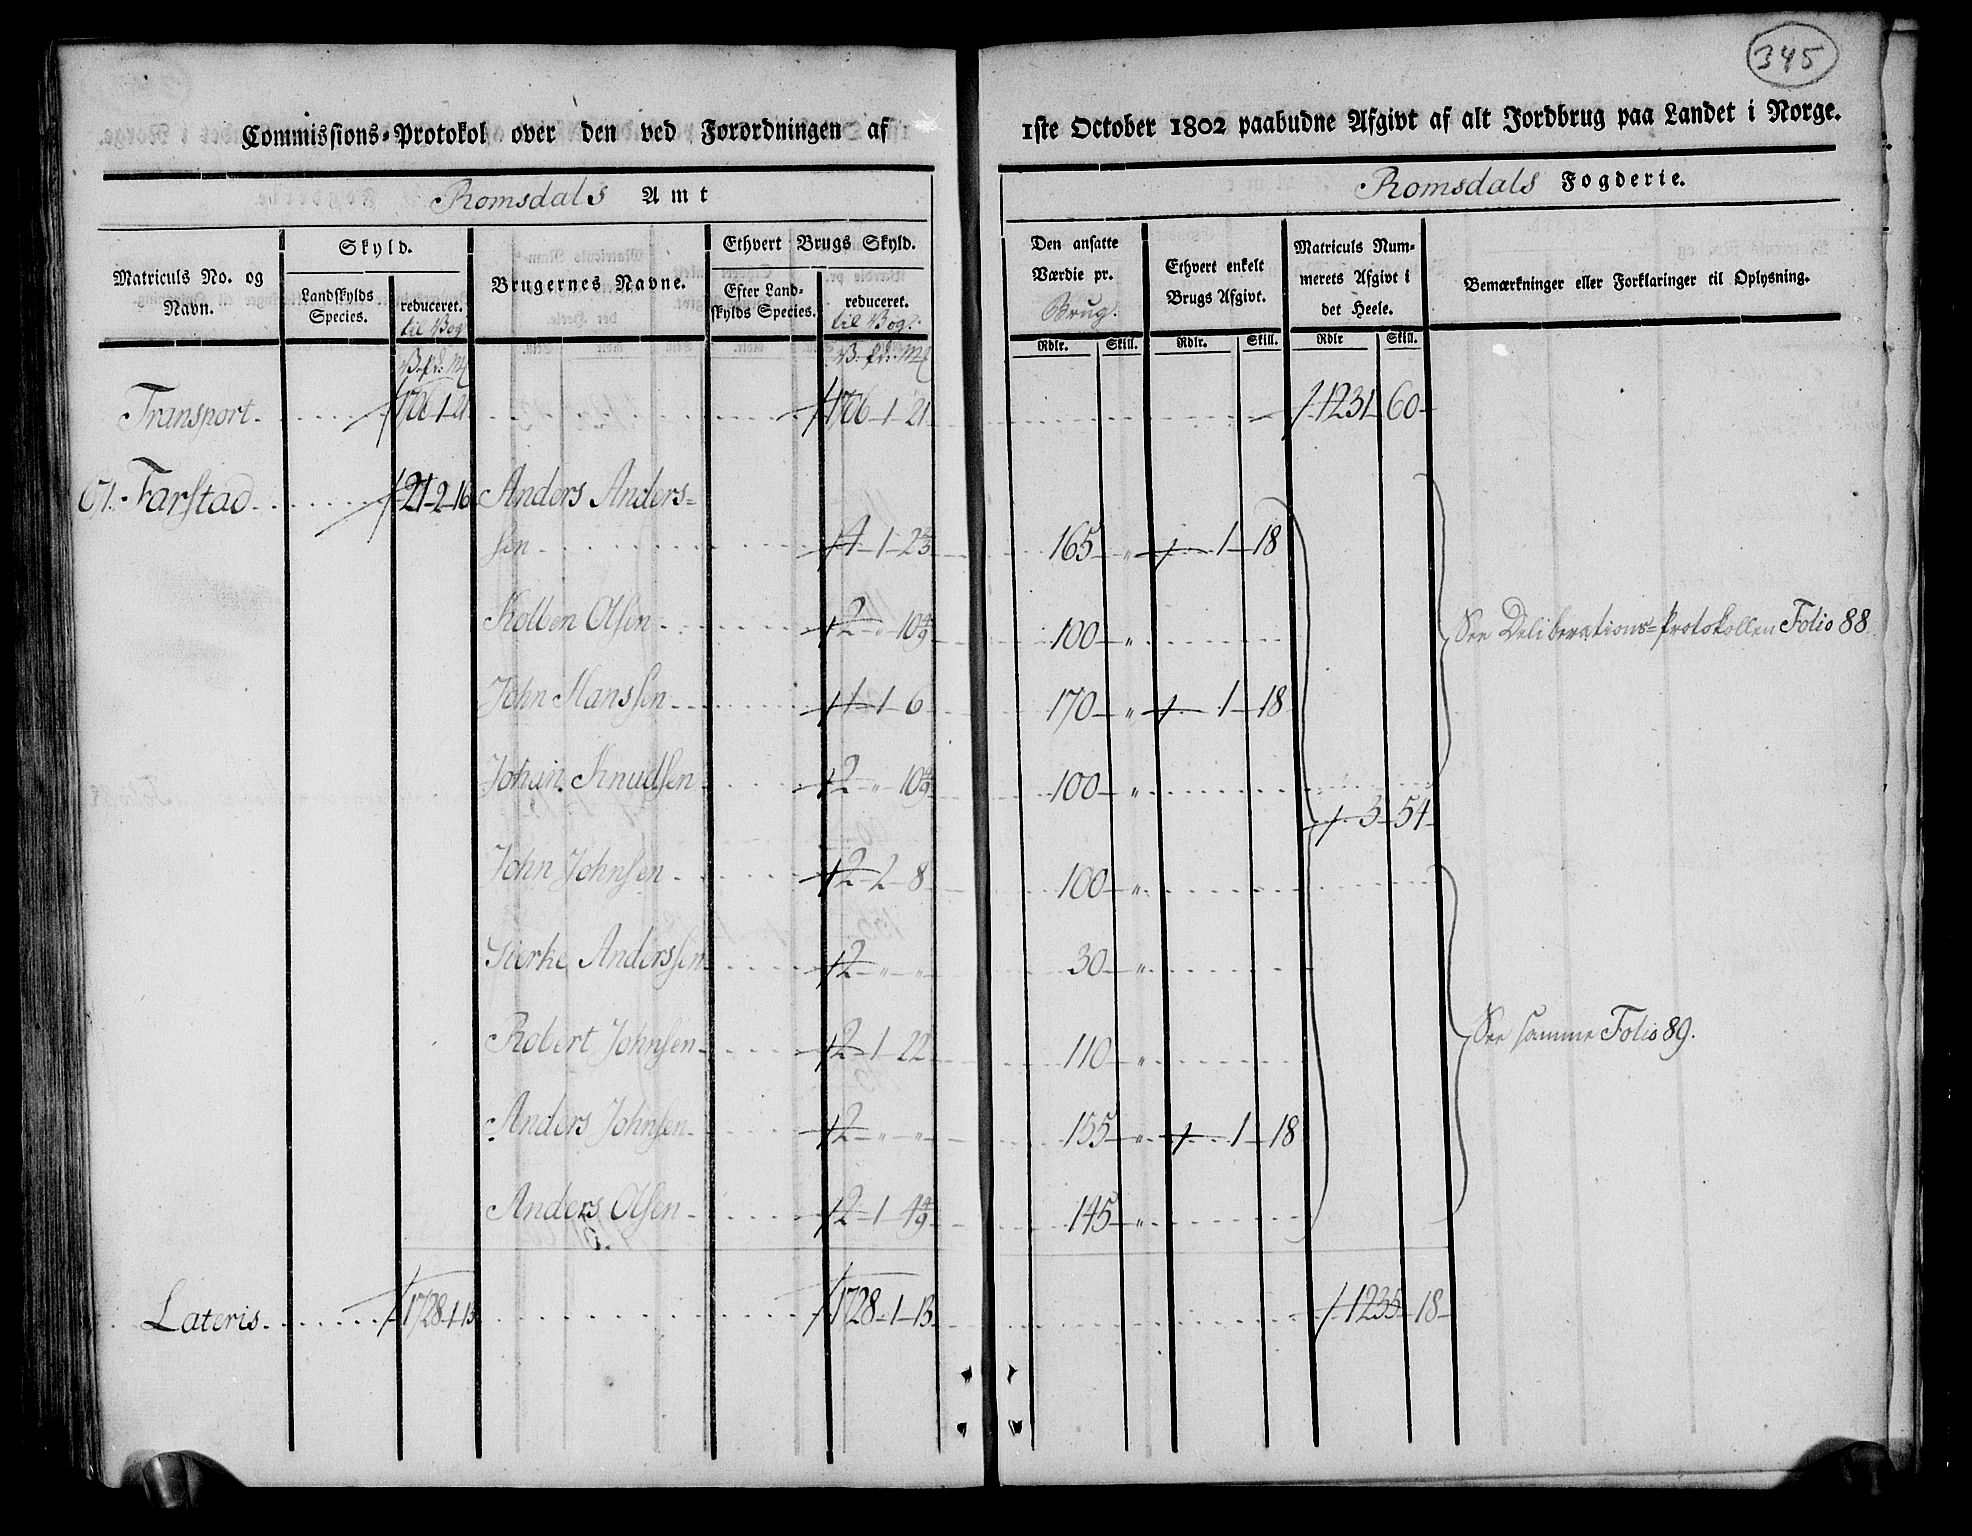 345
Commissions-Protokol over den ved Forordningen af 1ste October 1802 paabudne Afgivt af alt Jordbrug paa Landet i Norge.
Romsdals Amt
Romsdals Fogderie.
Matriculs No. og Navn.
Skyld.
Landskylds Species.
reduceret.
til Bog
B. pd: Mk
Brugernes Navne.
Ethvert Brugs Skyld.
Efter Landskylds Species.
reduceret.
til Bog:
B. pd: Mk
Den ansatte Værdie pr.
Brug.
Rdlr. Skill.
Ethvert enkelt Brugs Afgivt.
Rdlr. Skill.
Matriculs Nummerets Afgivt i det Heele.
Rdlr Skill.
Bemærkninger eller Forklaringer til Oplysning.
Transport. 1706-1-21 1706-1-21 1231-60
61. Farstad 21-2-16 Anders Anders=
sen 1-2 2/3 165 " 1-18
Kolben Olsen 2 " 10 4/9 100 "
John Hanssen 1-6 170 " 1-18
See Deliberations=Protokollen Folio 88
Johan Knudsen 2 " 10 4/9 100 "
3-54
John Johnsen 2-2-8 100 "
Gierke Anderssen 2 " " 30 "
Robert Johnsen 2-1-22 110 "
See samme Folio 89.
Anders Johnsen 2 " " 155 " 1-18
Anders Olsen 2-1-4 4/9 145 "
Lateris. 1728-1-13 1728-1-13 1235-18